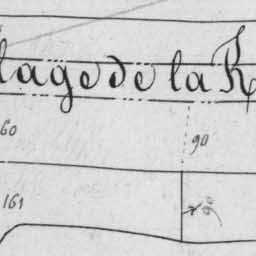 lage de la R
60
90
161
90